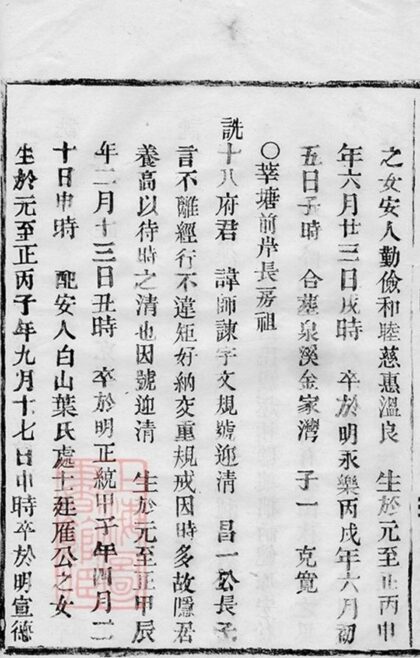 之女安人勤儉和睦慈惠溫良　生於元至正丙申
年六月廿三日戌時　卒於明永樂丙戌年六月初
五日子時　合墓泉溪金家灣　子一　克寬
〇莘塘前岸長房祖
詵十八府君　諱師諫字文規號迎清　昌一公長子
言不離經行不違矩好納交重規戒因時多故隱居
養高以待時之清也因號迎清　生於元至正甲辰
年二月十三日丑時　卒於明正統甲子年四月二
十日申時　配安人白山葉氏處士廷雁公之女
生於元至正丙子年九月十七日申時卒於明宣德